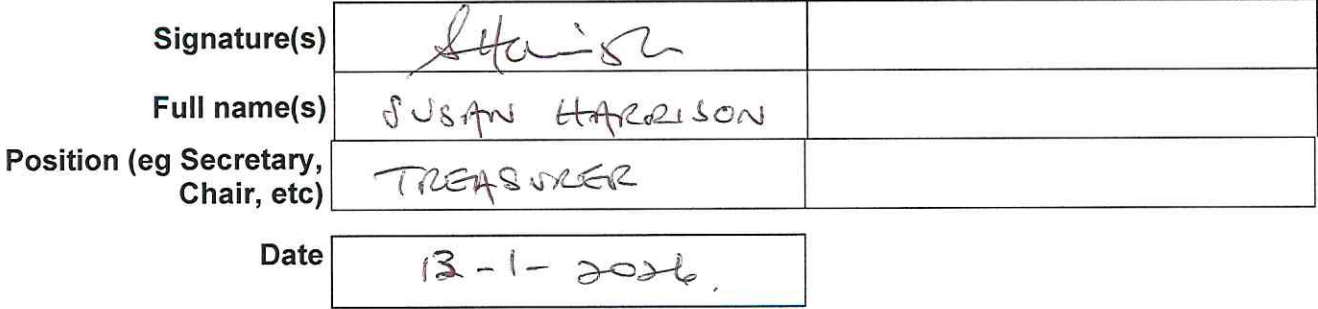 Signature(s)
Full name(s) SUSAN HARRISON
Position (eg Secretary,
Chair, etc) TREASURER
Date 13-1-2026.